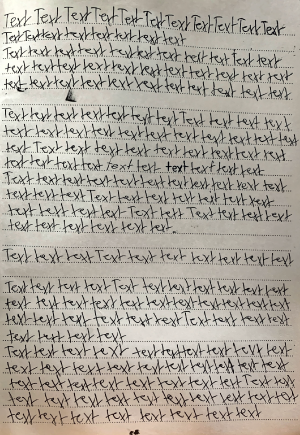 Text Text Text Text Text Text Text Text Text Text Text
Text Text text text text text text text
Text text text text text text text text text text text
text text text text text text text text text text text
text text text text text text text text text text text
Text text text text text text text Text text text text
text text text text text text text text text text text
text Text text text text text text text text text
text text text text text text text text text text
Text text text text text text text text text text text
text text text Text text text text text text text
text text text text Text text Text text text text
text text text text text text.
Text text text Text text text text text text text
Text text text text Text text text text text text text
text text text text text text text text text text text
text text text text text text Text text text text
text text text text text
Text text text text text text text text text text
text text text text text text text text text text text
text text text text text text text text text Text text
text text text text text text text text text text text
text text text text text text text text text